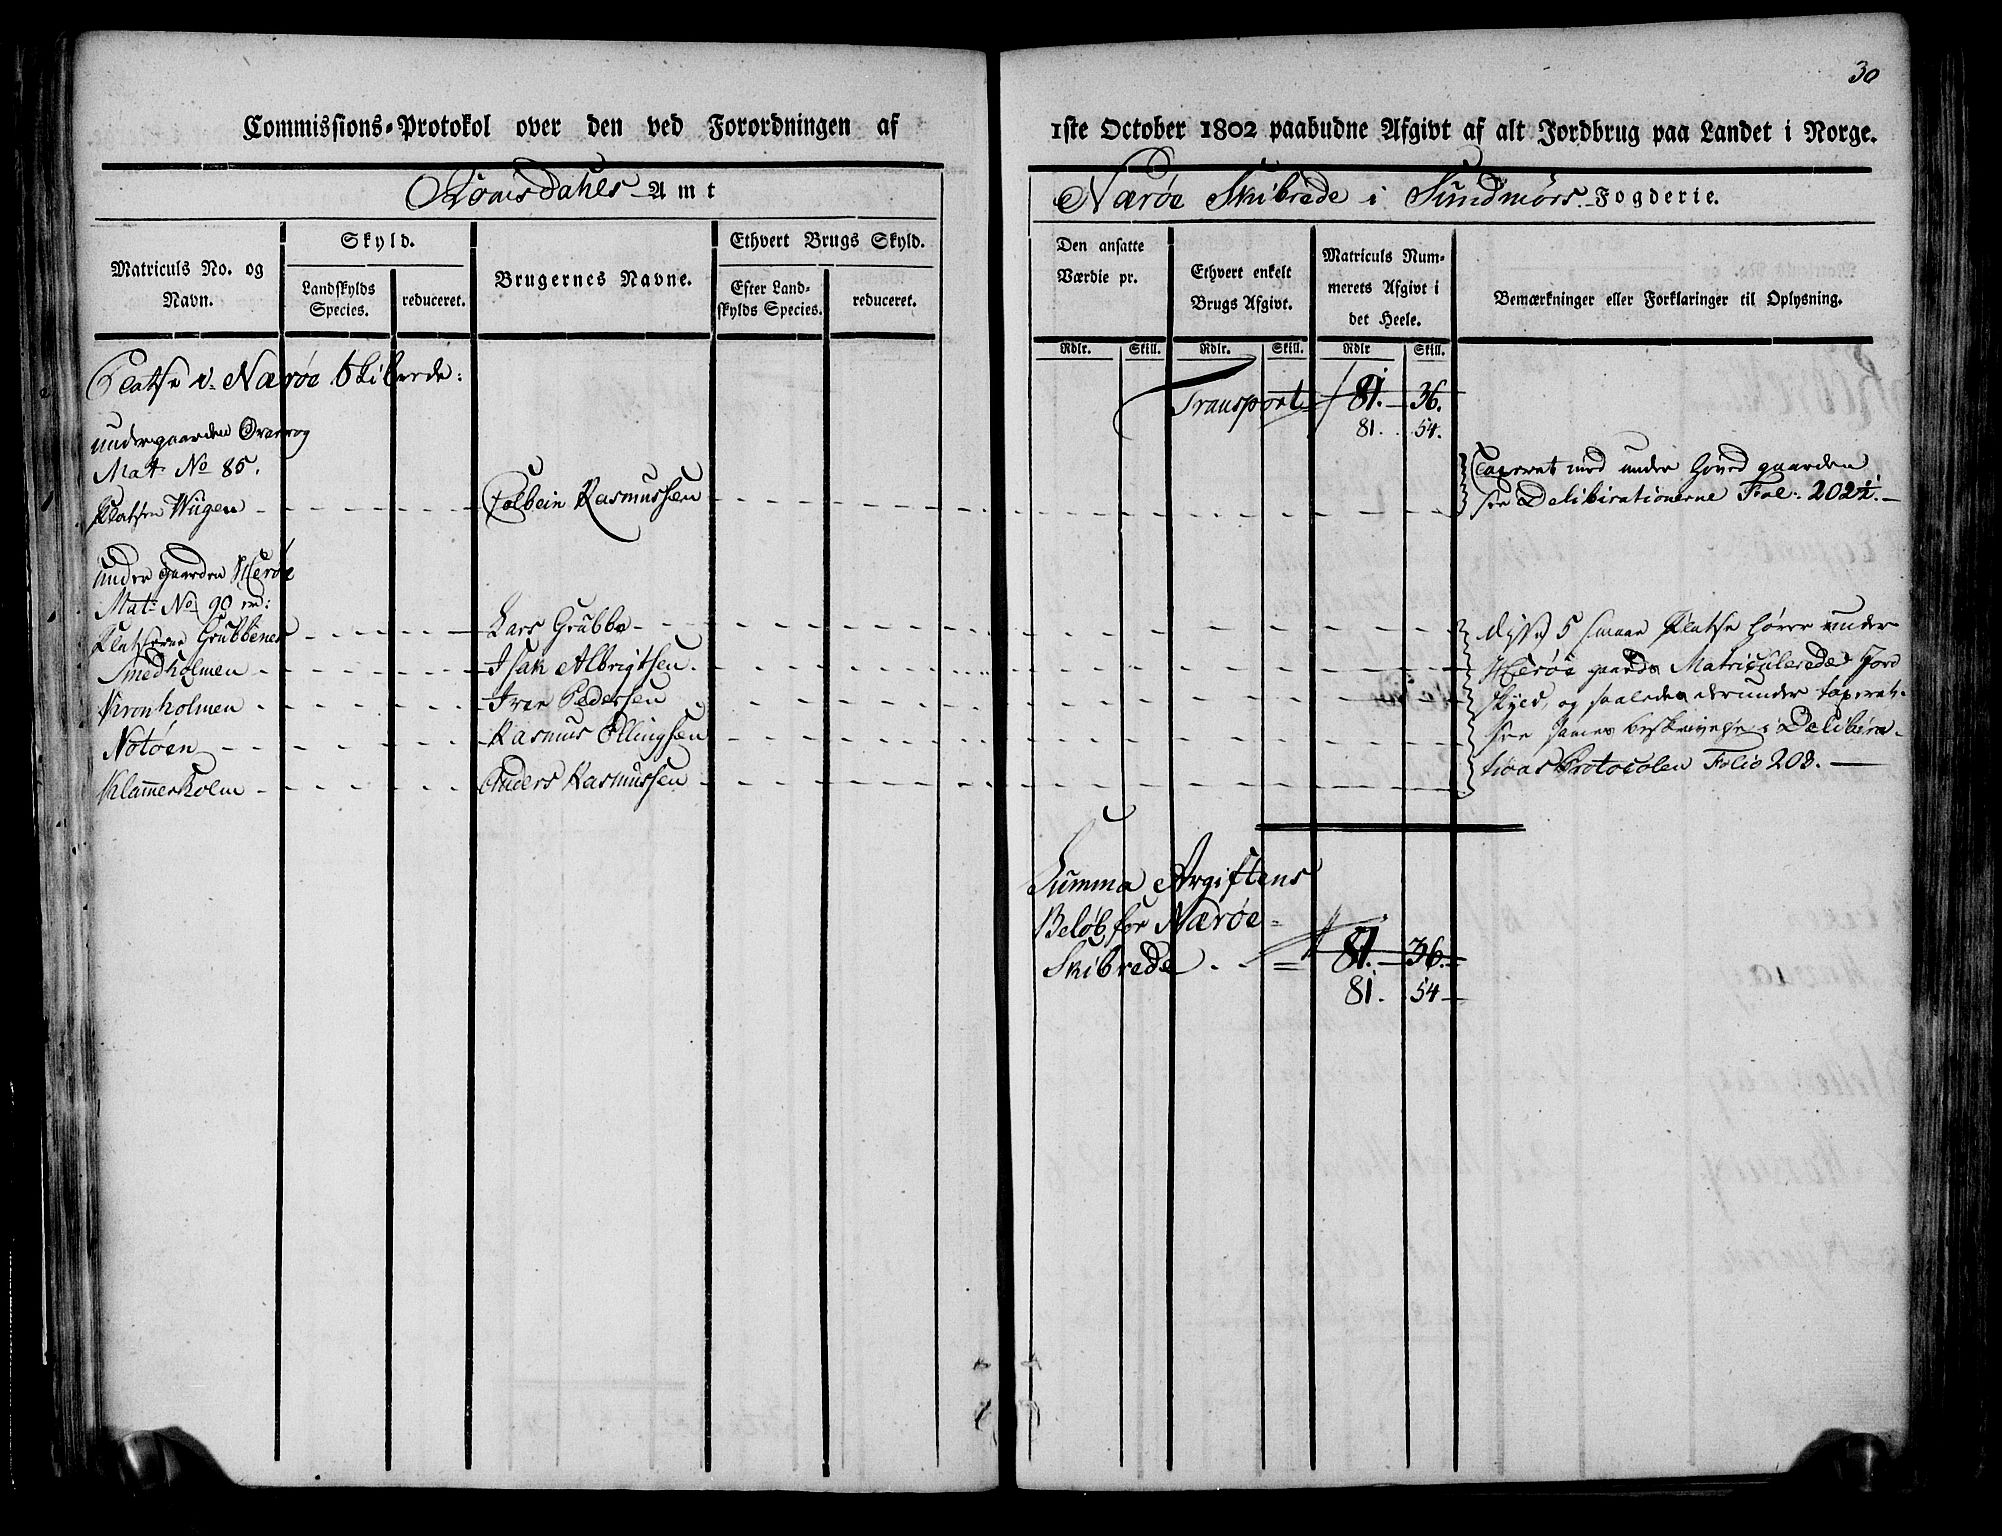 30
Commissions-Protokol over den ved Forordningen af
1ste October 1802 paabudne Afgivt af alt Jordbrug paa Landet i Norge.
Romsdahls Amt
Nærøe Skibrede i Sundmørs Fogderie.
Matriculs No. og Navn.
Skyld.
Landskylds Species.
reduceret.
Brugernes Navne.
Ethvert Brugs Skyld.
Efter Landskylds Species.
reduceret.
Den ansatte Værdie pr.
Ethvert enkelt Brugs Afgivt.
Matriculs Nummerets Afgivt i det Heele.
Bemærkninger eller Forklaringer til Oplysning.
Rdlr. Skill. Rdlr. Skill. Rdlr Skill.
Platse i Nærøe Skibrede:
Transport 81. 36.
81. 54.
under gaarden
Mat: No 85.
Taxeret med under Hoved gaarden
Platsen Wiigen Colbein Rasmussen
see Delibirationerne Fol: 202½.
under gaarden Herøe
Mat: No 90
Platserne Grubbenes Lars Grubbe
Smedholmen Isak Albrigtsen.
Kronholmen Iver Pedersen
Notøen Rasmus Ellingsen
Klammerholm Anders Rasmussen
disse 5 smaae Platse hører under
Herøe gaards Matriculerede Jord
skyld, og saaledes derunder taxeret.
see sammes beskrivelse i Delibera-
tions Protocolen Folio 208.
Summa Avgiftens
Beløb for Nærøe
Skibrede 81. 36.
81. 54